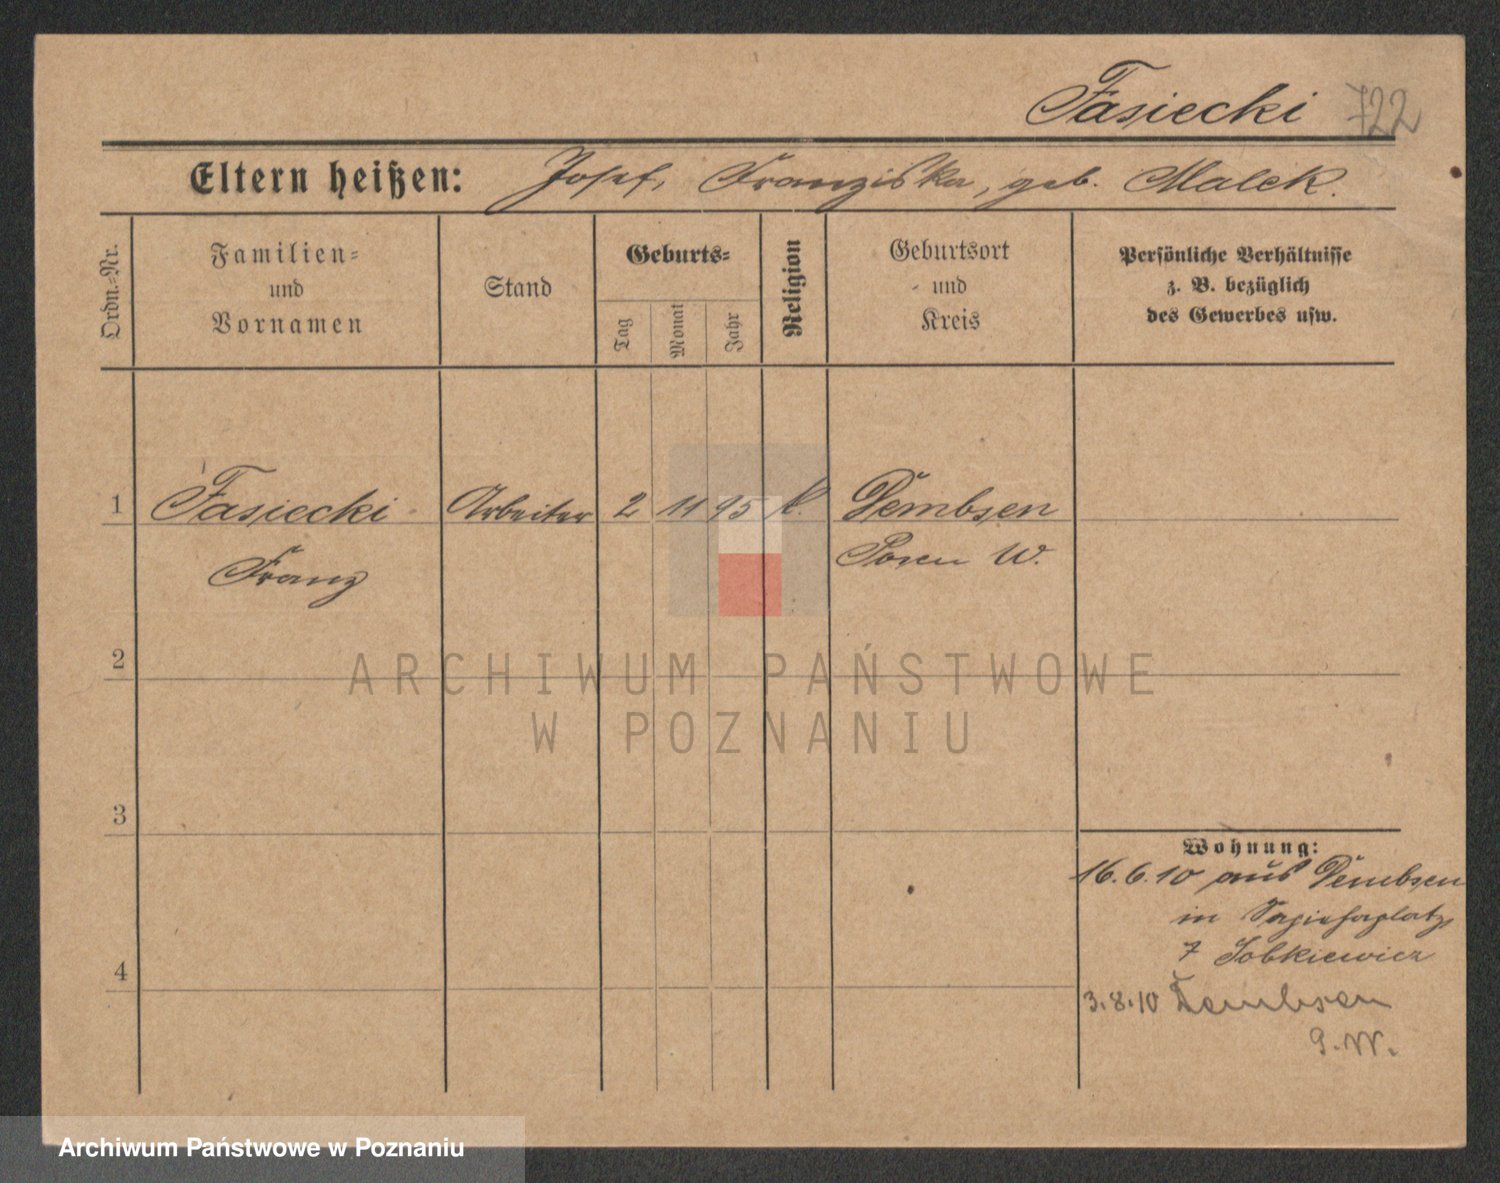 Fasiecki 722
Eltern heißen: Josef, Franziska, geb. Malek.
Ordn.-Nr.
Familien-
und
Vornamen
Stand
Geburts-
Tag
Monat
Jahr
Religion
Geburtsort
und
Kreis
Persönliche Verhältnisse
z. B. bezüglich
des Gewerbes usw.
1 Fasiecki Arbeiter 2 11 95 k. Dembsen
Franz Posen W.
2
ARCHIWUM PAŃSTWOWE
W POZNANIU
3
Wohnung:
16.6.10 aus Dembsen
in Sapiehaplatz
7 Sobkiewicz
4
3.8.10 Dembsen
P.W.
Archiwum Państwowe w Poznaniu